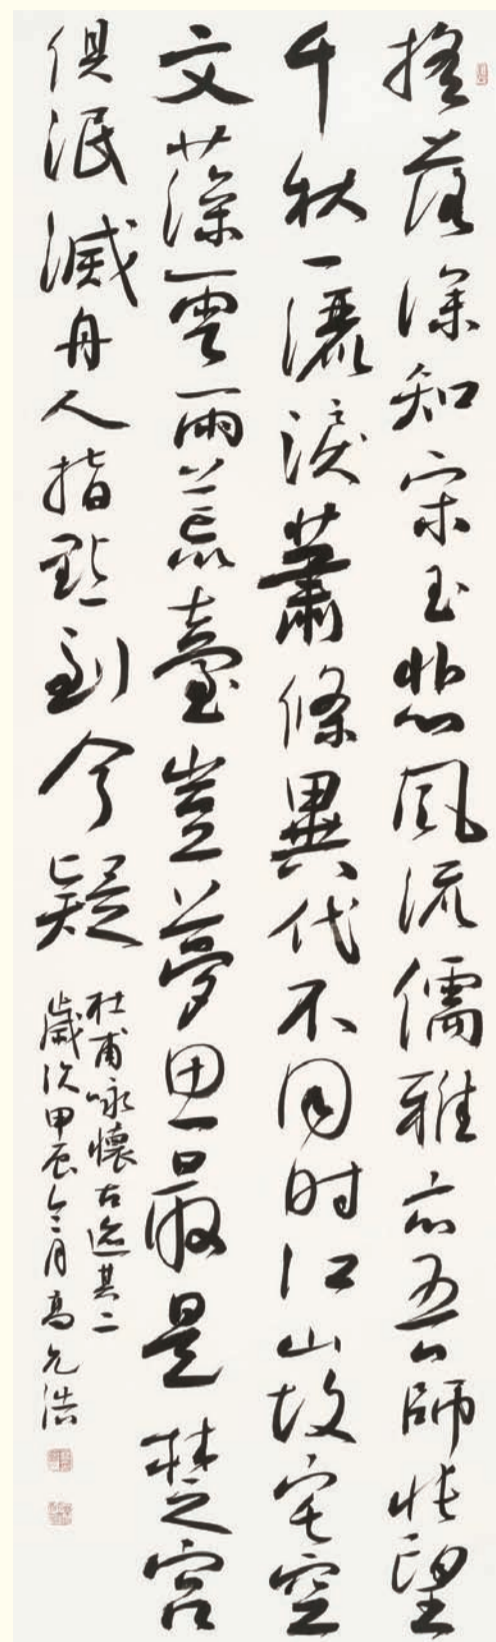 搖落深知宋玉悲風流儒雅亦吾師悵望
千秋一灑淚蕭條異代不同时江山故宅空
文藻雲雨荒臺豈夢思最是楚宮
俱泯滅舟人指點到今疑
杜甫咏懷古迹其二
歲次甲辰月高允浩